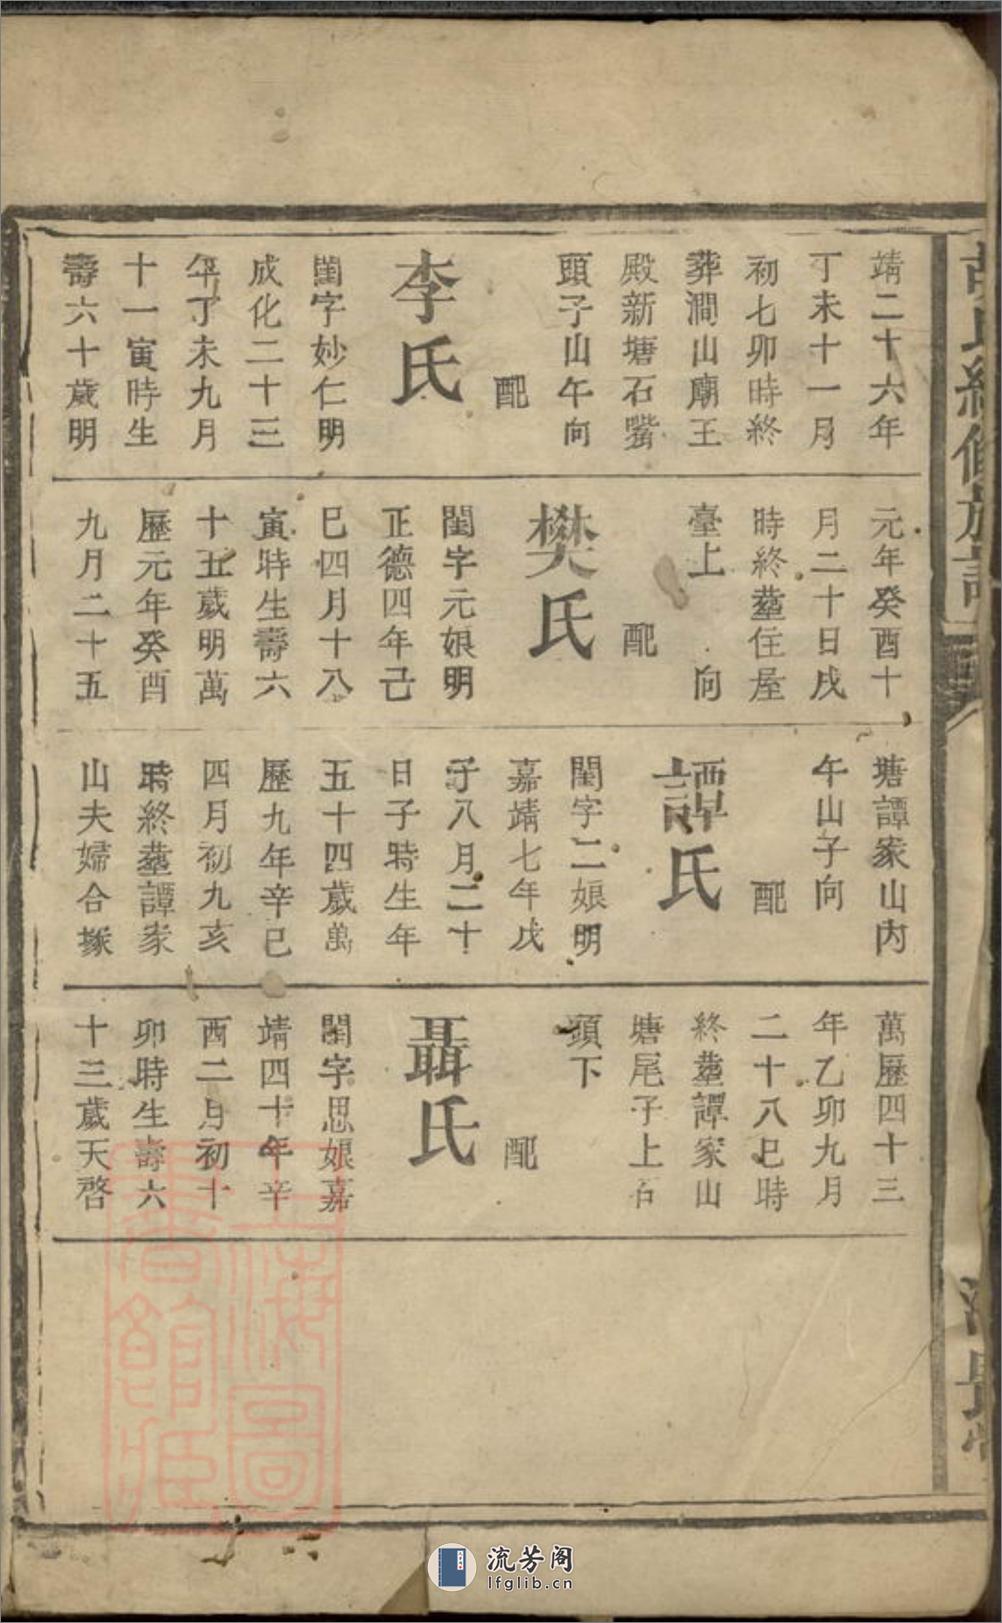 靖二十六年
丁未十一月
初七卯時終
葬澗山廟王
殿新塘石嘴
頭子山午向
配
李氏
閨字妙仁明
成化二十三
年丁未九月
十一寅時生
壽六十歲明
元年癸酉十
月二十日戌
時終塟住屋
臺上 向
配
樊氏
閨字元娘明
正德四年己
巳四月十八
寅時生壽六
十五歲明萬
歷元年癸酉
九月二十五
塘譚家山內
午山子向
配
譚氏
閨字二娘明
嘉靖七年戊
子八月二十
日子時生年
五十四歲萬
歷九年辛巳
四月初九亥
時終塟譚家
山夫婦合塚
萬歷四十三
年乙卯九月
二十八巳時
終塟譚家山
塘尾子上石
頭下
配
聶氏
閨字思娘嘉
靖四十年辛
酉二月初十
卯時生壽六
十三歲天啓
上海圖
書館藏
流芳阁
lfglib.cn